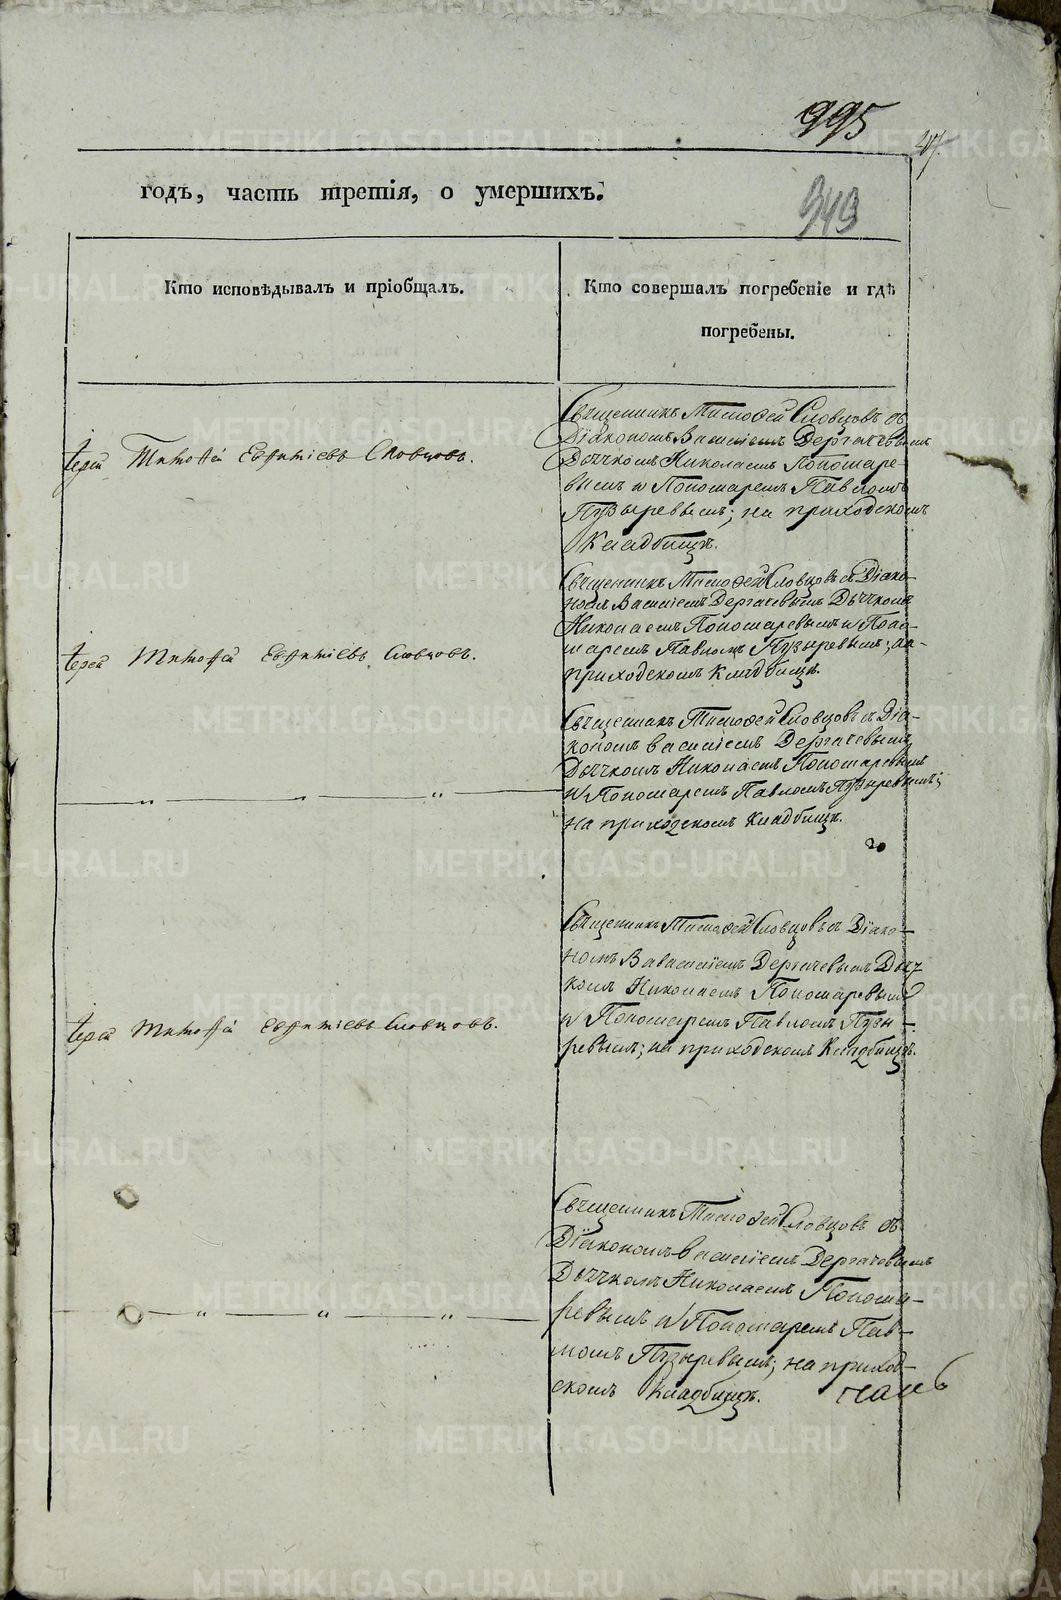 995
417
годъ, часть третія, о умершихъ.
343
Кто исповѣдывалъ и пріобщалъ.
Кто совершалъ погребеніе и гдѣ
погребены.
Іерей Тимоѳей Евѳиміевъ Словцовъ.
Священникъ Тимоѳей Словцовъ съ
Діакономъ Василіемъ Дергачевымъ
Дьячкомъ Николаемъ Пономаре-
вымъ и Пономаремъ Павломъ
Пузыревымъ; на приходскомъ
Кладбищѣ.
Іерей Тимоѳей Евѳиміевъ Словцовъ.
Священникъ Тимоѳей Словцовъ съ Діако-
номъ Василіемъ Дергачевымъ Дьячкомъ
Николаемъ Пономаревымъ и Поно-
маремъ Павломъ Пузыревымъ; на
приходскомъ Кладбищѣ.
— „ — „ — „ —
Священникъ Тимоѳей Словцовъ съ Діа-
кономъ Василіемъ Дергачевымъ
Дьячкомъ Николаемъ Пономаревымъ
и Пономаремъ Павломъ Пузыревымъ;
на приходскомъ Кладбищѣ.
Іерей Тимоѳей Евѳиміевъ Словцовъ.
Священникъ Тимоѳей Словцовъ съ Діако-
номъ Вавасиліемъ Дергачевымъ Дьяч
комъ Николаемъ Пономаревымъ
и Пономаремъ Павломъ Пузы-
ревымъ; на приходскомъ Кладбищѣ.
— „ — „ — „ —
Священникъ Тимоѳей Словцовъ съ
Діакономъ Василіемъ Дергачевымъ
Дьячкомъ Николаемъ Понома-
ревымъ и Пономаремъ Пав-
ломъ Пузыревымъ; на приход-
скомъ Кладбищѣ.
METRIKI.GASO-URAL.RU